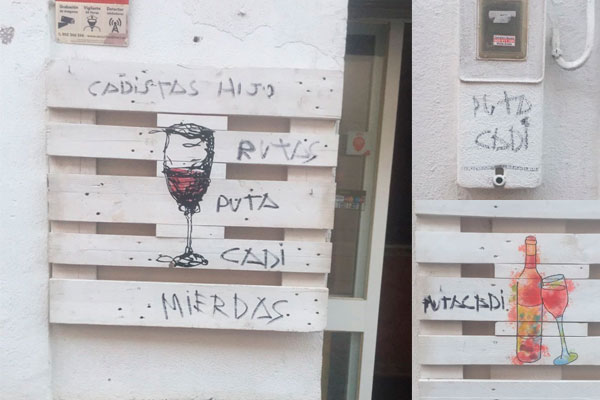 CADISTAS HIJO
RUTAS
PUTA
CADI
MIERDAS
PUTA
CADI
PUTACADI